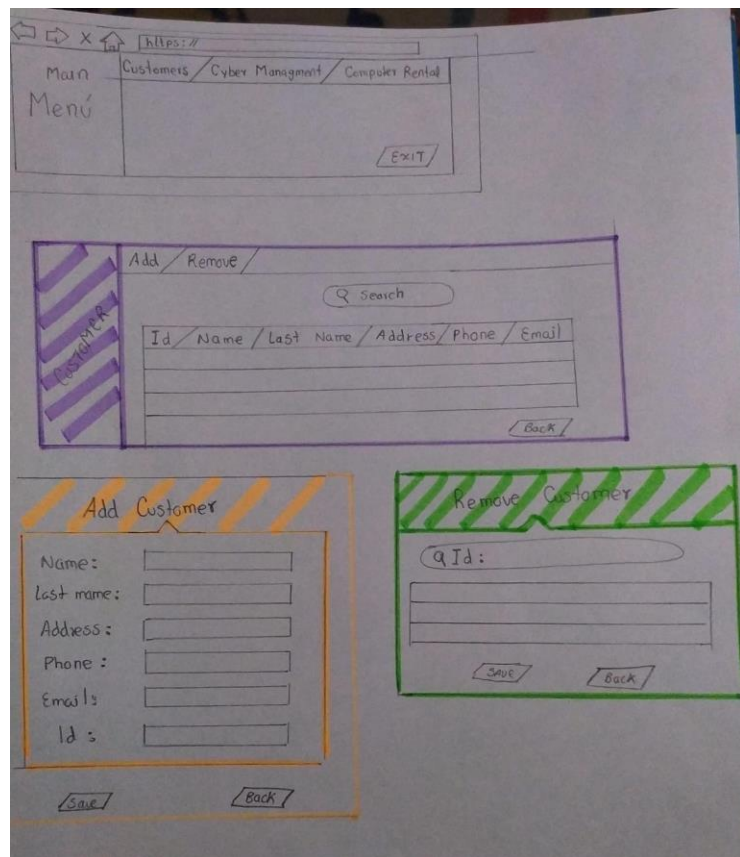 https://
Main
Menú
Customers / Cyber Managment / Computer Rental
EXIT
CUSTOMER
Add / Remove /
Search
Id / Name / Last Name / Address / Phone / Email
Back
Add Customer
Name:
Last mame:
Address:
Phone:
Email:
Id:
Save
Back
Remove Customer
Id:
SAVE
Back